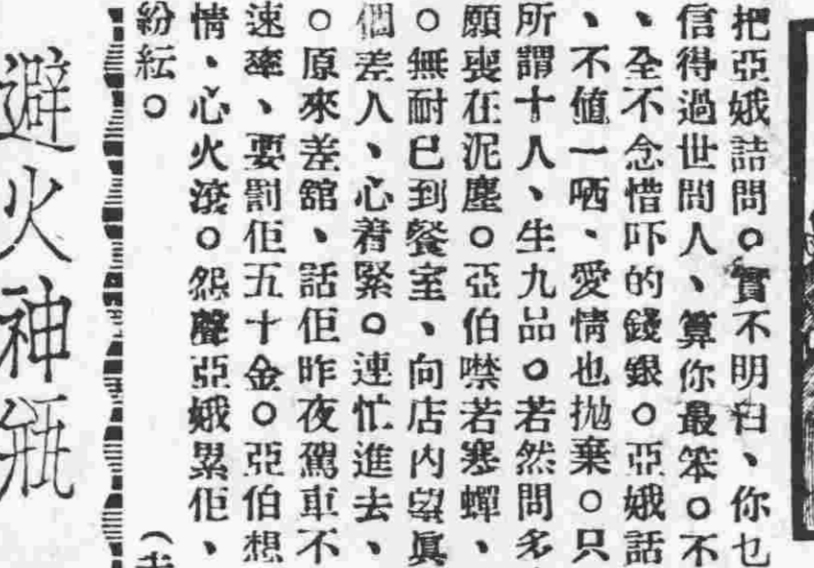 把亞娥詰問。實不明白、你乜
信得過世間人、算你最笨。不
、全不念惜吓的錢銀。亞娥話
、不値一哂、愛情也抛棄。只
所謂十人、生九品。若然問多
願喪在泥塵。亞伯噤若寒蟬、
。無耐已到餐室、向店內望眞
個差人、心着緊。連忙進去、
。原來差舘、話佢昨夜駕車不
速率、要罰佢五十金。亞伯想
情、心火滾。怨聲亞娥累佢、
紛紜。
避火神瓶